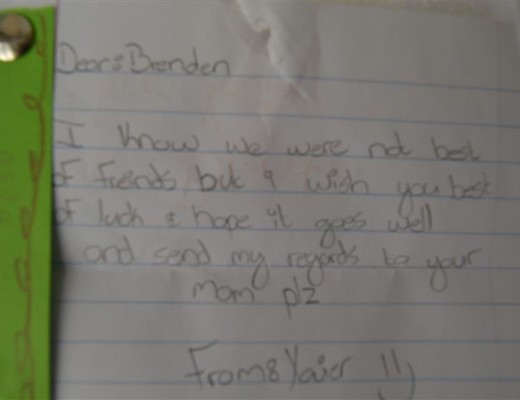 Dear: Brenden
I know we were not best
of friends but i wish you best
of luck & hope it goes well
and send my regards to your
mom plz
From: Yaier !!)